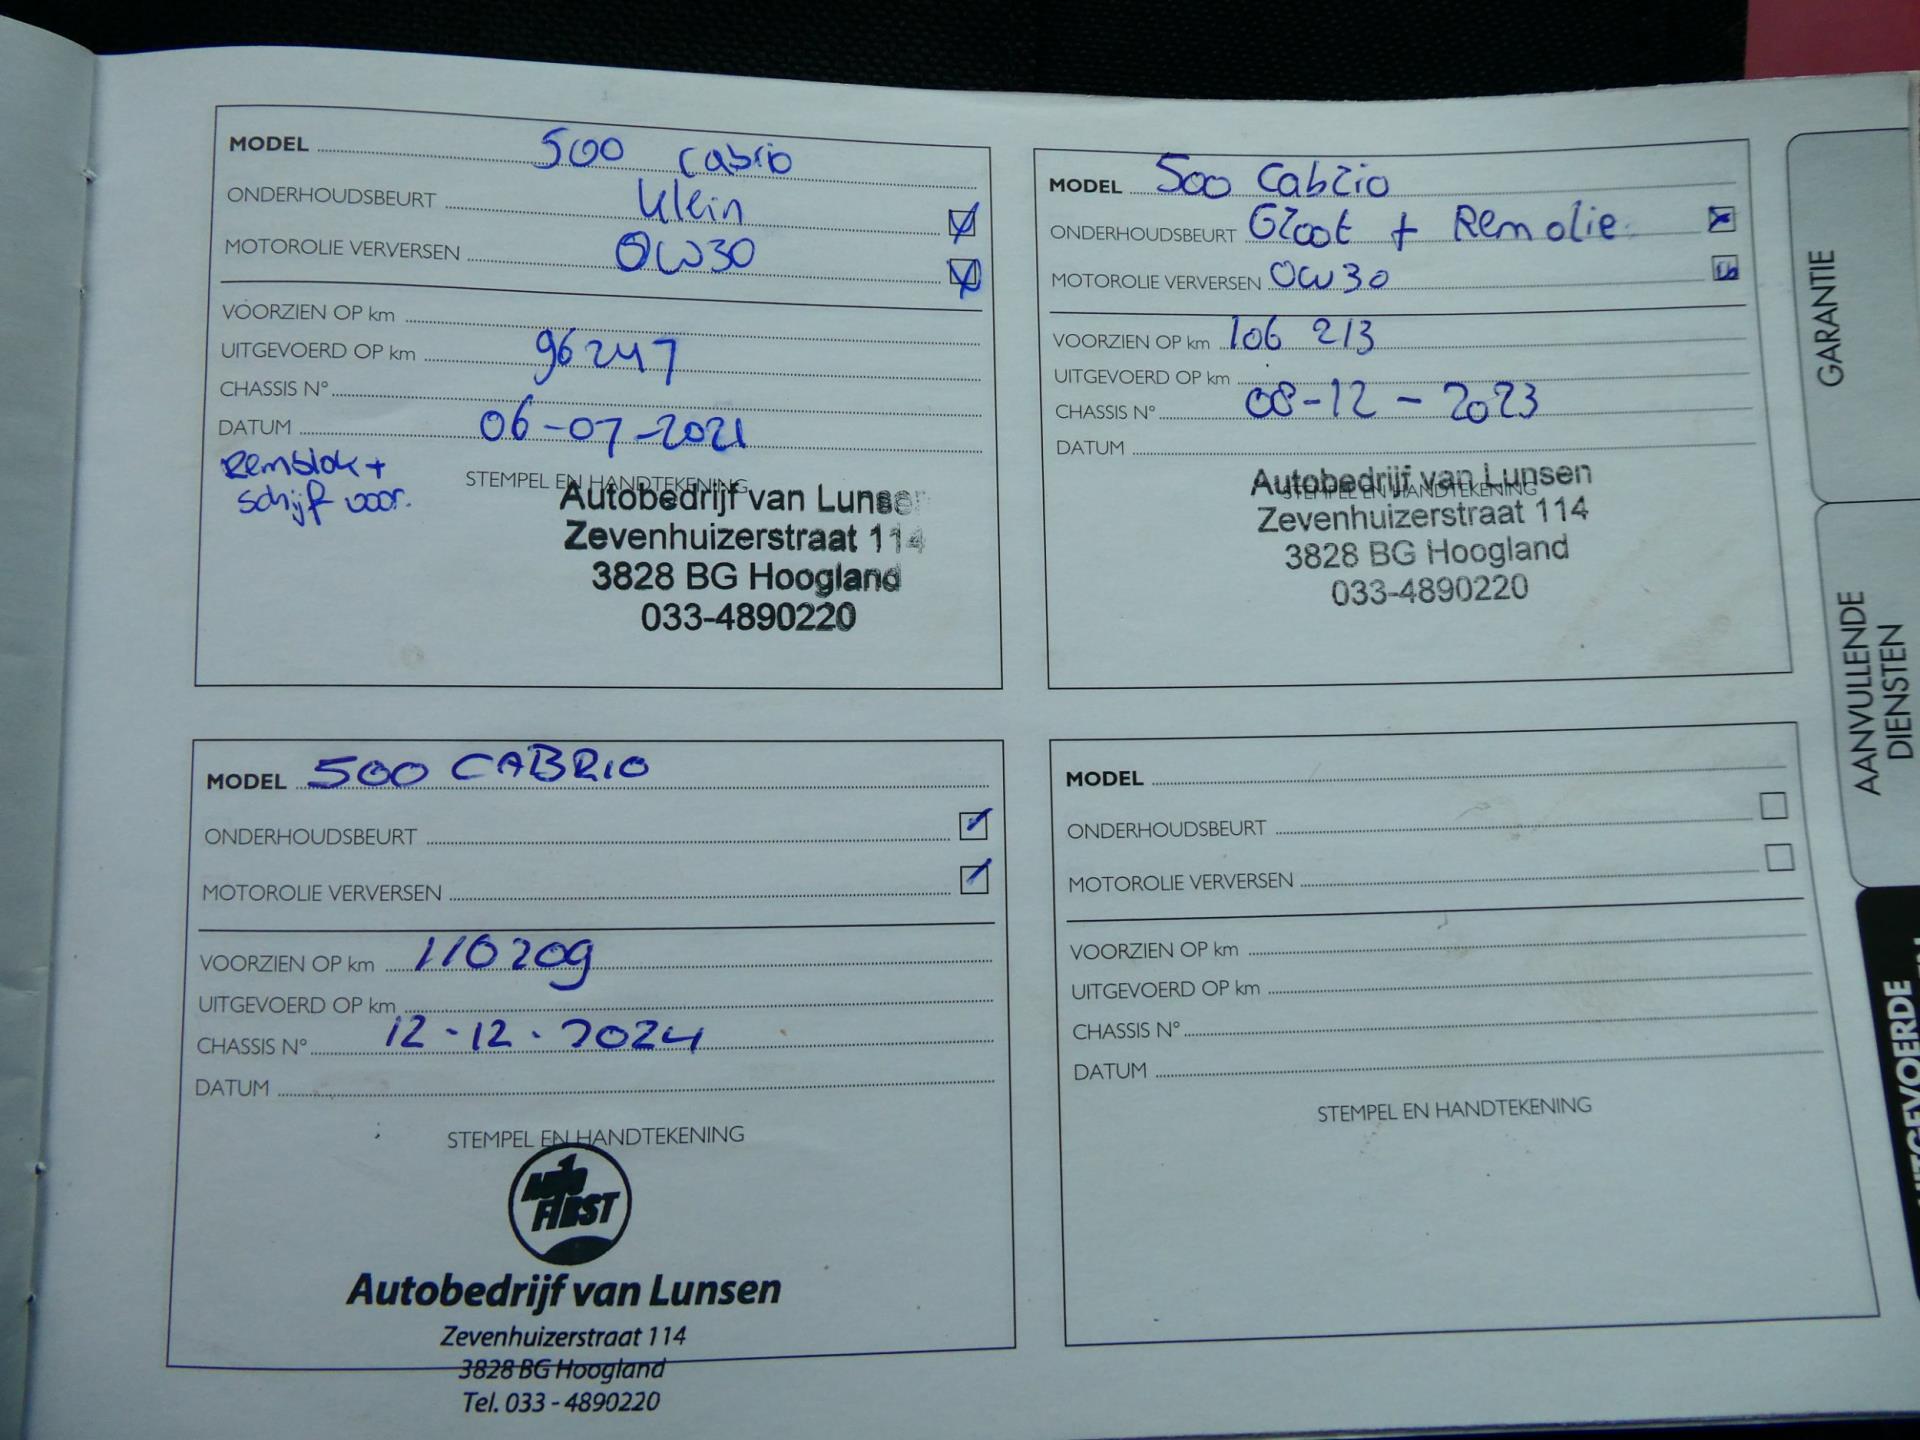 MODEL 500 cabrio
ONDERHOUDSBEURT Klein
MOTOROLIE VERVERSEN 0W30
VOORZIEN OP km
UITGEVOERD OP km 96247
CHASSIS N°
DATUM 06-07-2021
Remblok +
schijf voor.
STEMPEL EN HANDTEKENING
Autobedrijf van Lunsen
Zevenhuizerstraat 114
3828 BG Hoogland
033-4890220
MODEL 500 Cabrio
ONDERHOUDSBEURT Groot + Remolie
MOTOROLIE VERVERSEN 0W30
VOORZIEN OP km 106 213
UITGEVOERD OP km
CHASSIS N° 08-12-2023
DATUM
STEMPEL EN HANDTEKENING
Autobedrijf van Lunsen
Zevenhuizerstraat 114
3828 BG Hoogland
033-4890220
MODEL 500 CABRIO
ONDERHOUDSBEURT
MOTOROLIE VERVERSEN
VOORZIEN OP km 110209
UITGEVOERD OP km
CHASSIS N° 12-12-2024
DATUM
STEMPEL EN HANDTEKENING
FIRST
Autobedrijf van Lunsen
Zevenhuizerstraat 114
3828 BG Hoogland
Tel. 033 - 4890220
MODEL
ONDERHOUDSBEURT
MOTOROLIE VERVERSEN
VOORZIEN OP km
UITGEVOERD OP km
CHASSIS N°
DATUM
STEMPEL EN HANDTEKENING
GARANTIE
AANVULLENDE
DIENSTEN
UITGEVOERDE